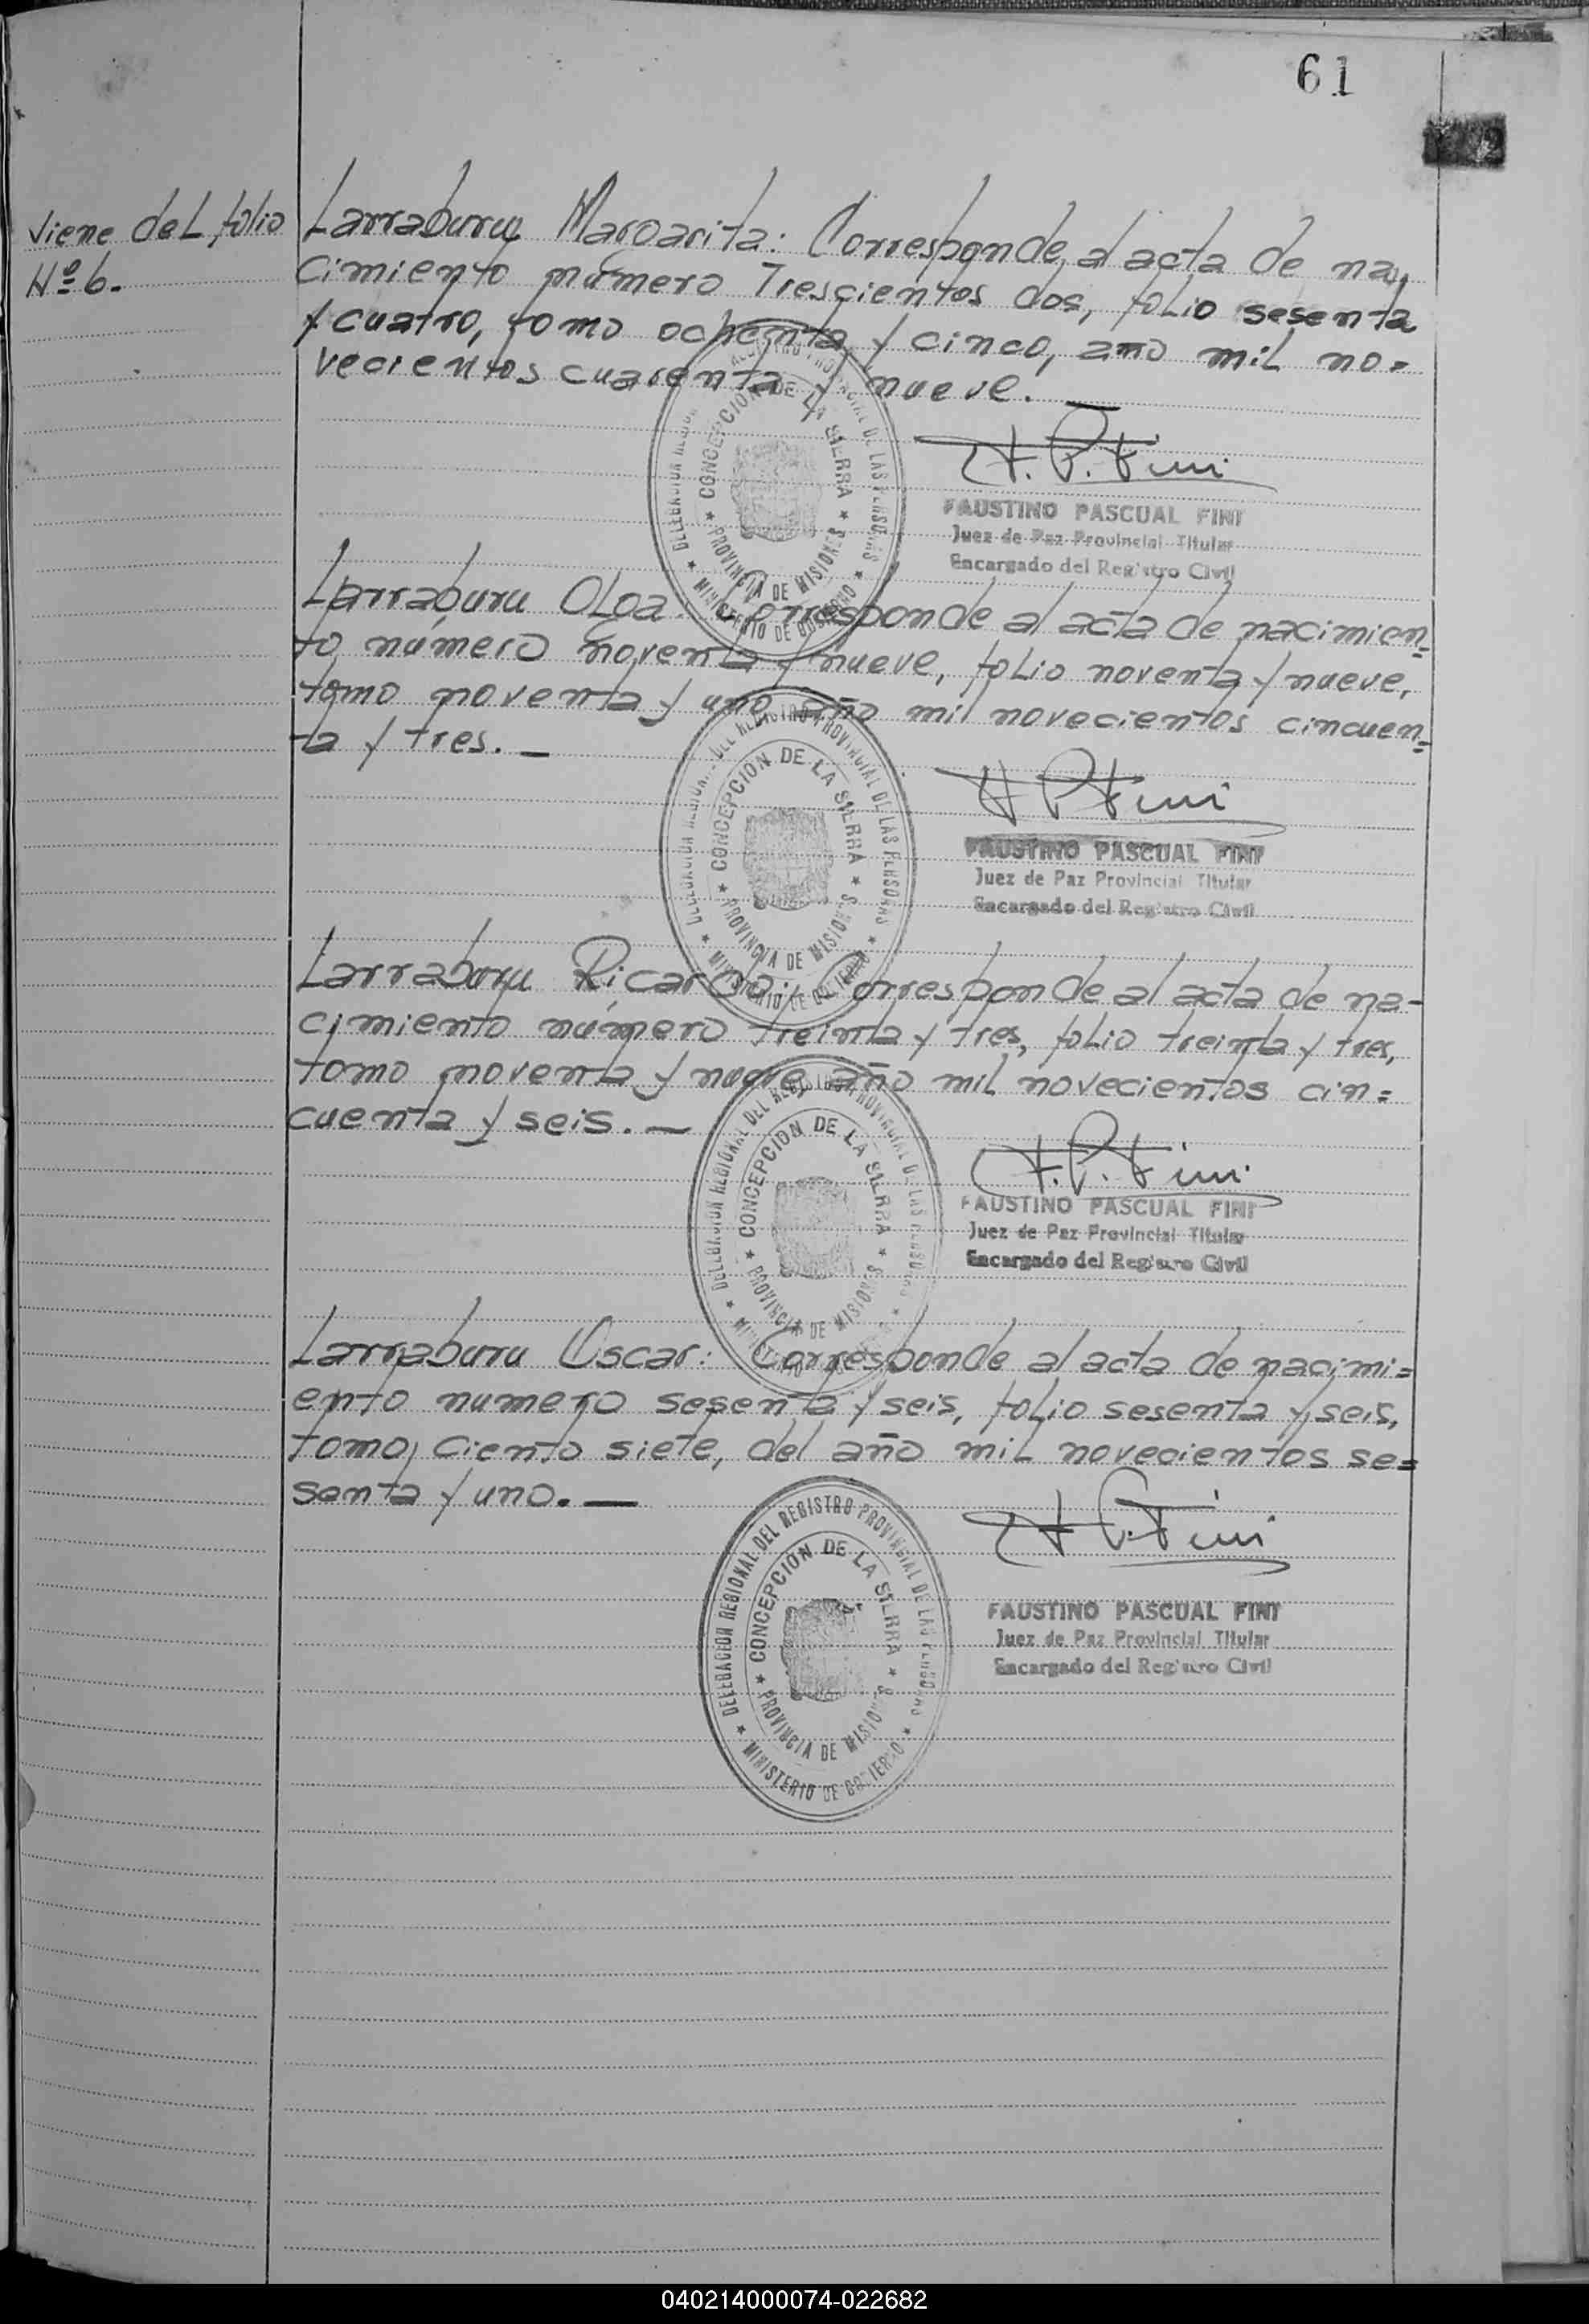 61
Viene del folio
Nº 6.
Larraburu Margarita: Corresponde al acta de na-
cimiento número Trescientos dos, folio sesenta
y cuatro, tomo ochenta y cinco, año mil no=
vecientos cuarenta y nueve. —
F. P. Fini
FAUSTINO PASCUAL FINI
Juez de Paz Provincial Titular
Encargado del Registro Civil
CONCEPCION DE LA SIERRA
PROVINCIA DE MISIONES
MINISTERIO DE GOBIERNO
Larraburu Olga: Corresponde al acta de nacimien=
to número noventa y nueve, folio noventa y nueve,
tomo noventa y uno año mil novecientos cincuen=
ta y tres. —
F P. Fini
FAUSTINO PASCUAL FINI
Juez de Paz Provincial Titular
Encargado del Registro Civil
DEL REGISTRO PROVINCIAL DE LAS PERSONAS
CONCEPCION DE LA SIERRA
PROVINCIA DE MISIONES
MINISTERIO DE GOBIERNO
Larraburu Ricardo: Corresponde al acta de na-
cimiento número treinta y tres, folio treinta y tres,
tomo noventa y nueve año mil novecientos cin=
cuenta y seis. —
F. P. Fini
FAUSTINO PASCUAL FINI
Juez de Paz Provincial Titular
Encargado del Registro Civil
DELEGACION REGIONAL DEL REGISTRO PROVINCIAL DE LAS PERSONAS
CONCEPCION DE LA SIERRA
PROVINCIA DE MISIONES
Larraburu Oscar: Corresponde al acta de nacimi=
ento numero sesenta y seis, folio sesenta y seis,
tomo, ciento siete, del año mil novecientos se=
senta y uno. —
F P. Fini
FAUSTINO PASCUAL FINI
Juez de Paz Provincial Titular
Encargado del Registro Civil
DELEGACION REGIONAL DEL REGISTRO PROVINCIAL DE LAS PERSONAS
CONCEPCION DE LA SIERRA
PROVINCIA DE MISIONES
MINISTERIO DE GOBIERNO
040214000074-022682